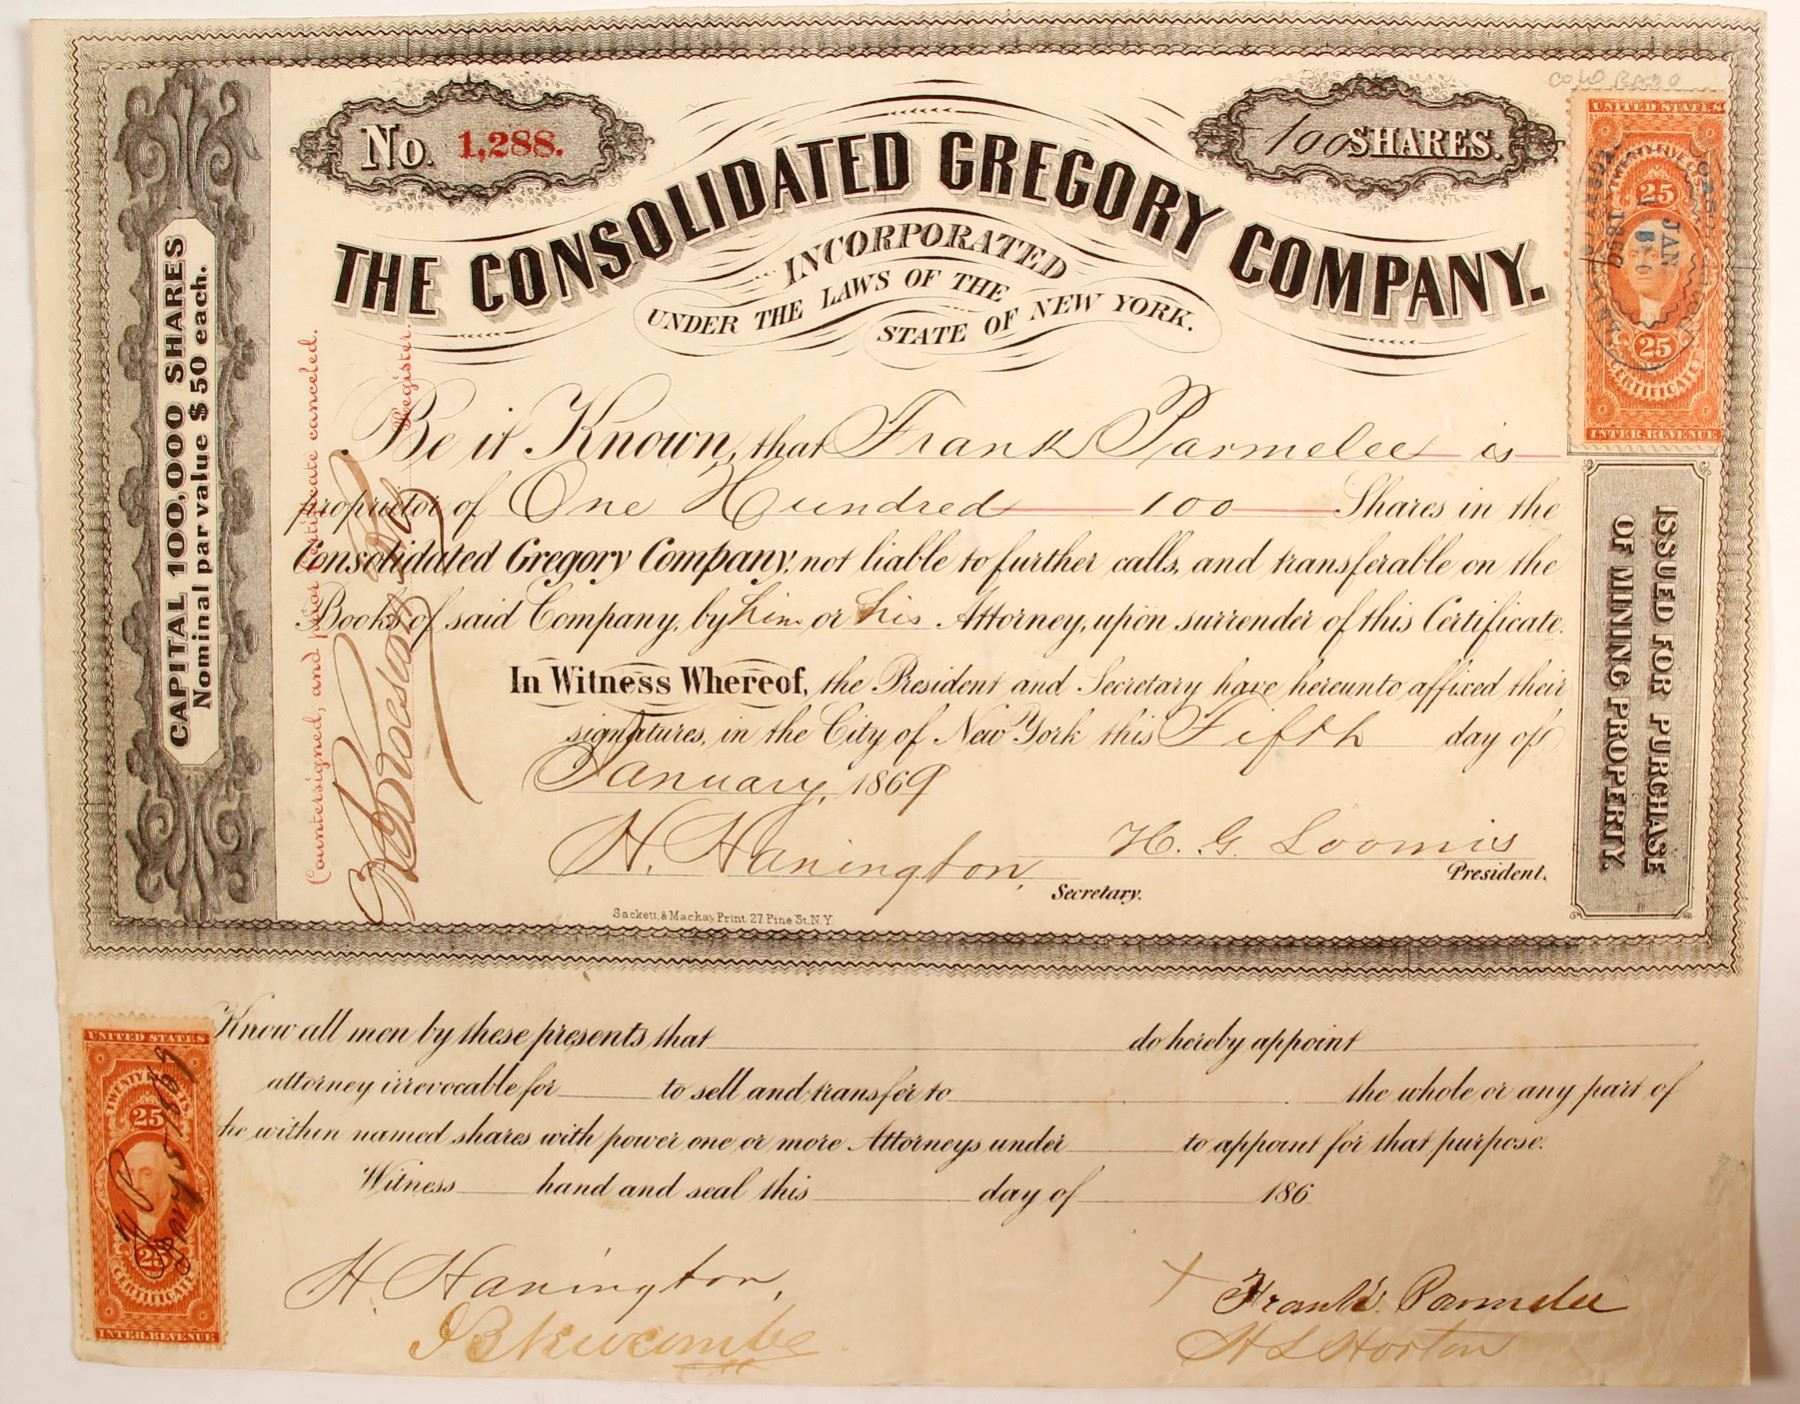 No. 1,288.
100 SHARES.
THE CONSOLIDATED GREGORY COMPANY.
INCORPORATED
UNDER THE LAWS OF THE
STATE OF NEW YORK.
CAPITAL 100,000 SHARES
Nominal par value $50 each.
Countersigned, and prior certificate canceled.
Register.
UNITED STATES
25
JAN
25
CERTIFICATE
INTER. REVENUE
ISSUED FOR PURCHASE
OF MINING PROPERTY.
Be it Known, that Frank Parmelee is
proprietor of One Hundred 100 Shares in the
Consolidated Gregory Company, not liable to further calls, and transferable on the
Books of said Company, by him or his Attorney, upon surrender of this Certificate.
In Witness Whereof, the President and Secretary have hereunto affixed their
signatures, in the City of New York this Fifth day of
January, 1869
H. Hanington, Secretary.
H. G. Loomis President.
Sackett & Mackay Print. 27 Pine St. N.Y.
Know all men by these presents that do hereby appoint
attorney irrevocable for to sell and transfer to the whole or any part of
he within named shares with power one or more Attorneys under to appoint for that purpose.
Witness hand and seal this day of 186
UNITED STATES
25
25
CERTIFICATE
INTER. REVENUE
H. Hanington,
Frank Parmelee
H L Horton